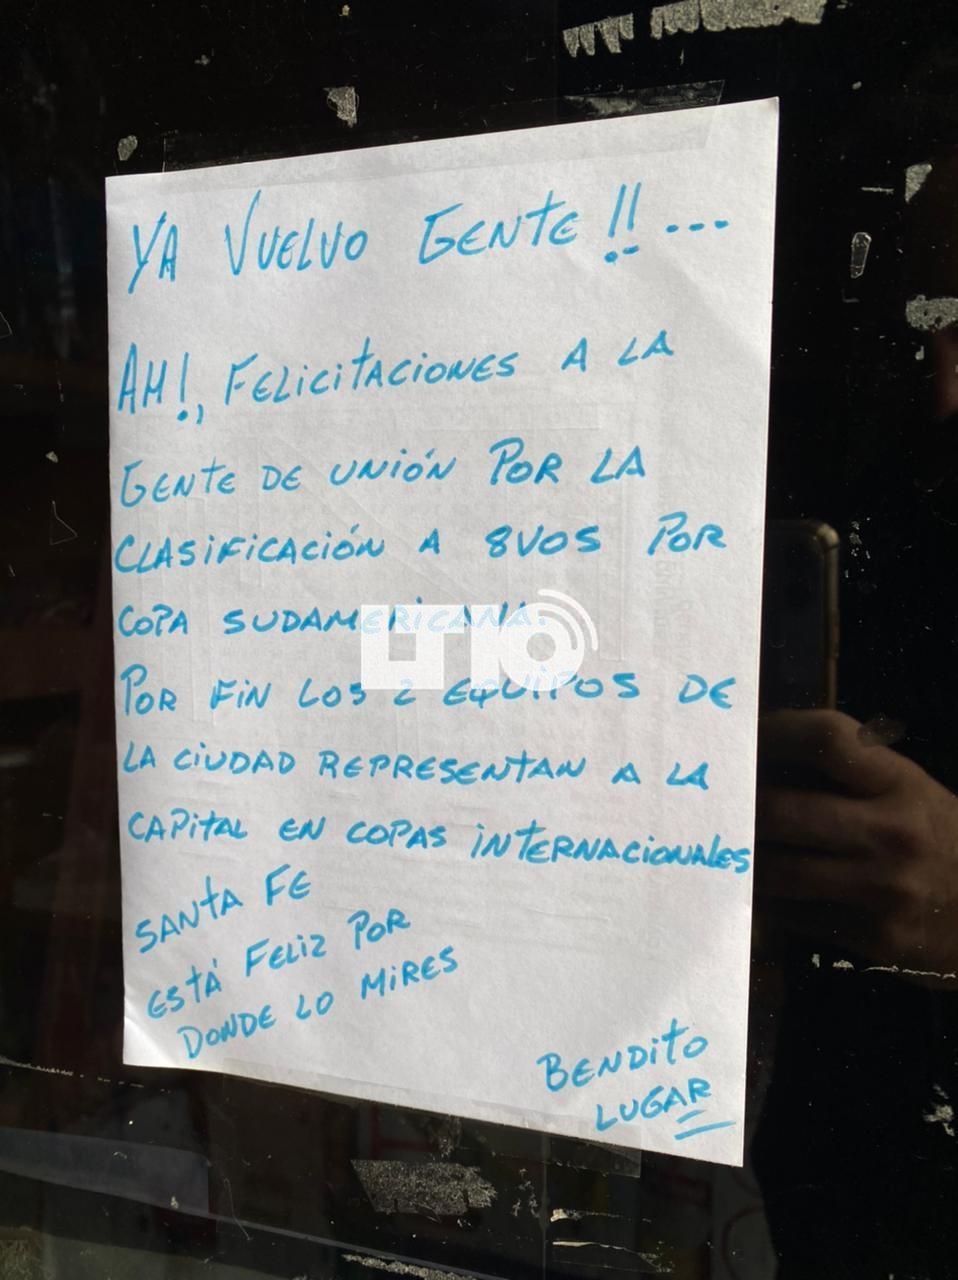 YA VUELVO GENTE!!...
AH!, FELICITACIONES A LA
GENTE DE UNIÓN POR LA
CLASIFICACIÓN A 8VOS POR
COPA SUDAMERICANA.
LT10
POR FIN LOS 2 EQUIPOS DE
LA CIUDAD REPRESENTAN A LA
CAPITAL EN COPAS INTERNACIONALES
SANTA FE
ESTÁ FELIZ POR
DONDE LO MIRES
BENDITO
LUGAR